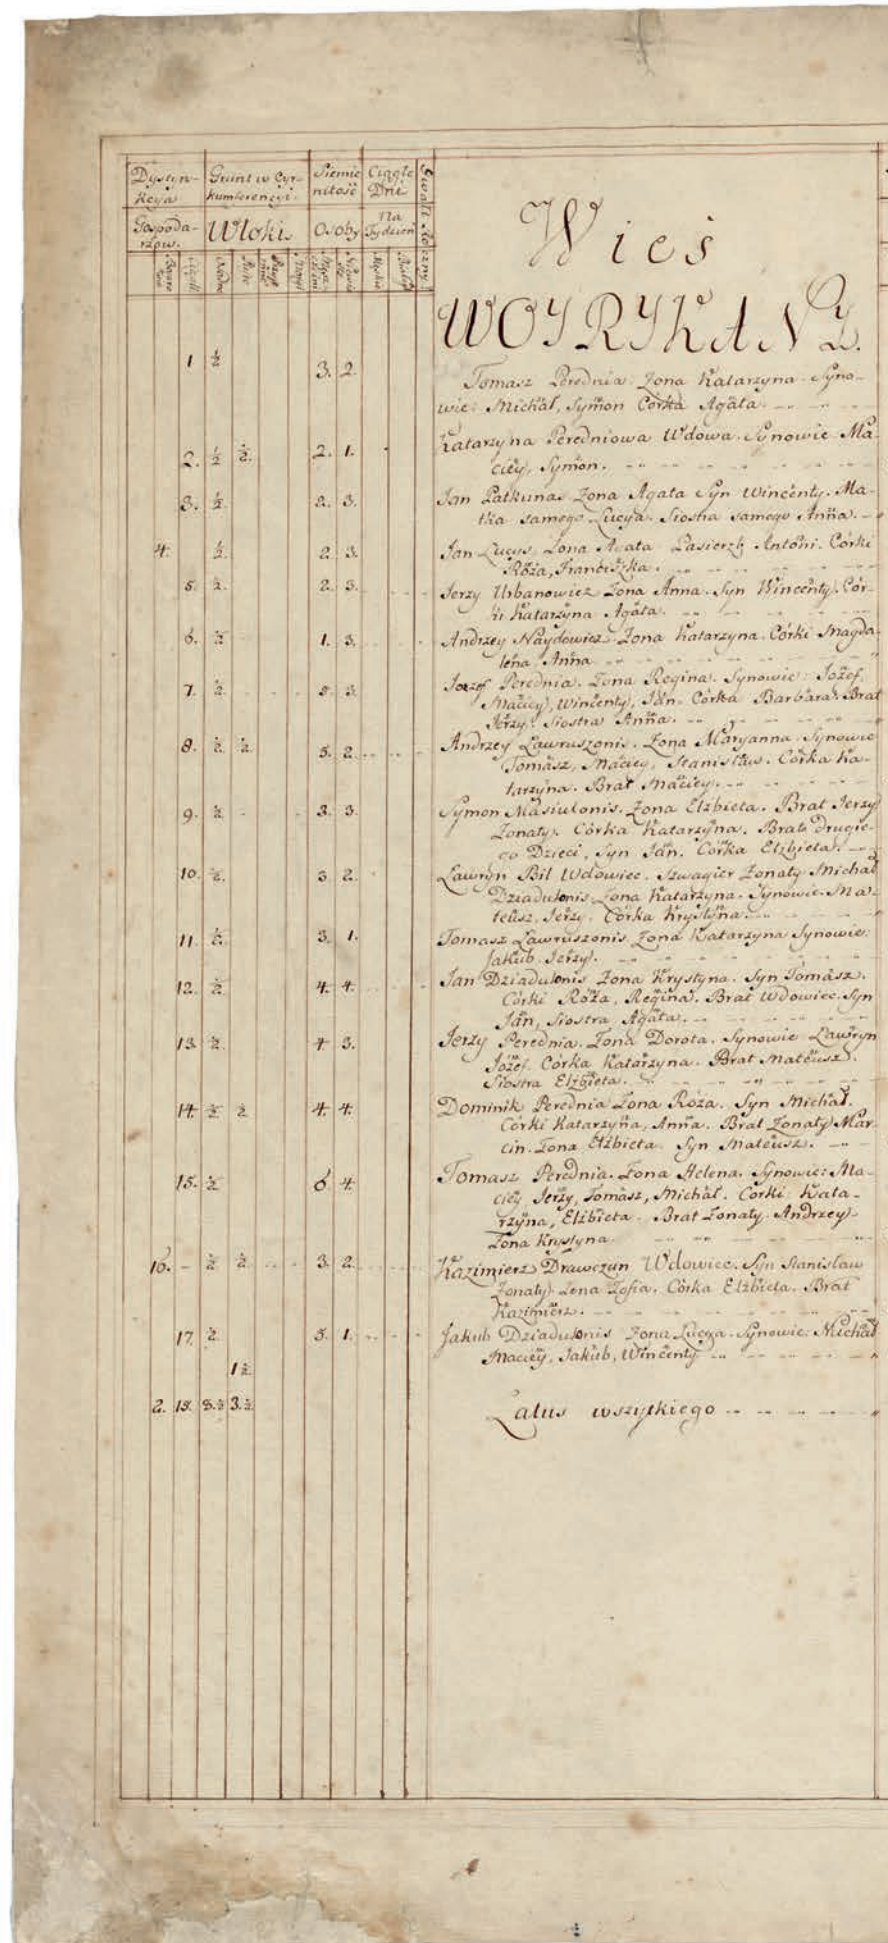 Dystyn- Grunt w Cyr- Siemie Ciągłe
kcya kumferencyi nitość Dni
Gospoda- Włoki Osoby Na
rzów. Tydzień
Wieś
WOYRYKANY.
1 ½ 3. 2. Tomasz Perednia. Zona Katarzyna. Syno-
wie: Michał, Symon Corka Agata.
Katarzyna Peredniowa Wdowa. Synowie Ma-
2. ½ ½. 2. 1. ciey, Symon.
3. ½. 2. 3. Jan Patkunas Zona Agata Syn Wincenty. Ma-
tka samego Lucya. Siostra samego Anna.
4. ½. 2. 3. Jan Lucys Zona Agata Pasierzb Antoni. Córki
Róża, Franciszka.
5. ½. 2. 3. Jerzy Urbanowicz Zona Anna. Syn Wincenty. Cór-
ki Katarzyna Agata.
6. ½ 1. 3. Andrzey Naydowicz Zona Katarzyna. Córki Magda-
lena, Anna
7. ½. 3. Jozef Perednia. Zona Regina. Synowie: Jozef,
Maciey, Wincenty, Jan. Córka Barbara. Brat
Jerzy. Siostra Anna.
8. ½. ½. 5. 2. Andrzey Ławruszonis. Zona Maryanna. Synowie
Tomasz, Maciey, Stanisław. Córka Ka-
tarzyna. Brat Maciey.
9. ½ 3. 3. Symon Masiulonis. Zona Elżbieta. Brat Jerzy
Zonaty. Córka Katarzyna. Brata drugie-
go Dzieci, Syn Jan. Córka Elżbieta.
10. ½. 3 2. Ławryn Bil Wdowiec. Szwagier Zonaty Michał
Dziadulonis. Zona Katarzyna. Synowie. Ma-
teusz, Jerzy. Córka Krystyna.
11. ½. 3. 1. Tomasz Ławruszonis Zona Katarzyna Synowie:
Jakub Jerzy.
12. ½. 4. 4. Jan Dziadulonis Zona Krystyna. Syn Tomasz.
Córki Róża, Regina. Brat Wdowiec. Syn
Jan, Siostra Agata.
13. ½. 4 3. Jerzy Perednia. Zona Dorota. Synowie Ławryn
Józef. Córka Katarzyna. Brat Mateusz.
Siostra Elżbieta.
14. ½ ½ 4. 4. Dominik Perednia Zona Róża. Syn Michał.
Córki Katarzyna, Anna. Brat Zonaty Mar-
cin. Zona Elżbieta. Syn Mateusz.
15. ½ 6. 4. Tomasz Perednia. Zona Helena. Synowie: Ma-
ciey Jerzy, Tomasz, Michał. Córki Kata-
rzyna, Elżbieta. Brat Zonaty Andrzey.
Zona Krystyna.
16. ½ ½ 3. 2. Kazimierz Drawczun Wdowiec. Syn Stanisław
Zonaty. Zona Zofia. Córka Elżbieta. Brat
Kazimierz.
17. ½. 5. 1. Jakub Dziadulonis Zona Lucya. Synowie: Michał
Maciey, Jakub, Wincenty
1 ½.
2. 15. 8.½ 3.½ Latus wszytkiego